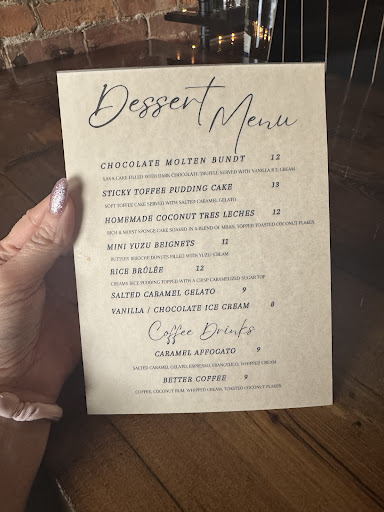 Dessert Menu
CHOCOLATE MOLTEN BUNDT 12
CAKE FILLED WITH DARK CHOCOLATE TRUFFLE SERVED WITH VANILLA ICE CREAM
STICKY TOFFEE PUDDING CAKE 13
SOFT TOFFEE CAKE SERVED WITH SALTED CARAMEL GELATO
HOMEMADE COCONUT TRES LECHES 12
RICH & MOIST SPONGE CAKE SOAKED IN A BLEND OF MILKS, TOPPED TOASTED COCONUT FLAKES
MINI YUZU BEIGNETS 11
BUTTERY BRIOCHE DONUTS FILLED WITH YUZU CREAM
RICE BRÛLÉE 12
CREAMY RICE PUDDING TOPPED WITH A CRISP CARAMELIZED SUGAR TOP
SALTED CARAMEL GELATO 9
VANILLA / CHOCOLATE ICE CREAM 8
Coffee Drinks
CARAMEL AFFOGATO 9
SALTED CARAMEL GELATO, ESPRESSO, FRANGELICO, WHIPPED CREAM
BETTER COFFEE 9
COFFEE, COCONUT RUM, WHIPPED CREAM, TOASTED COCONUT FLAKES